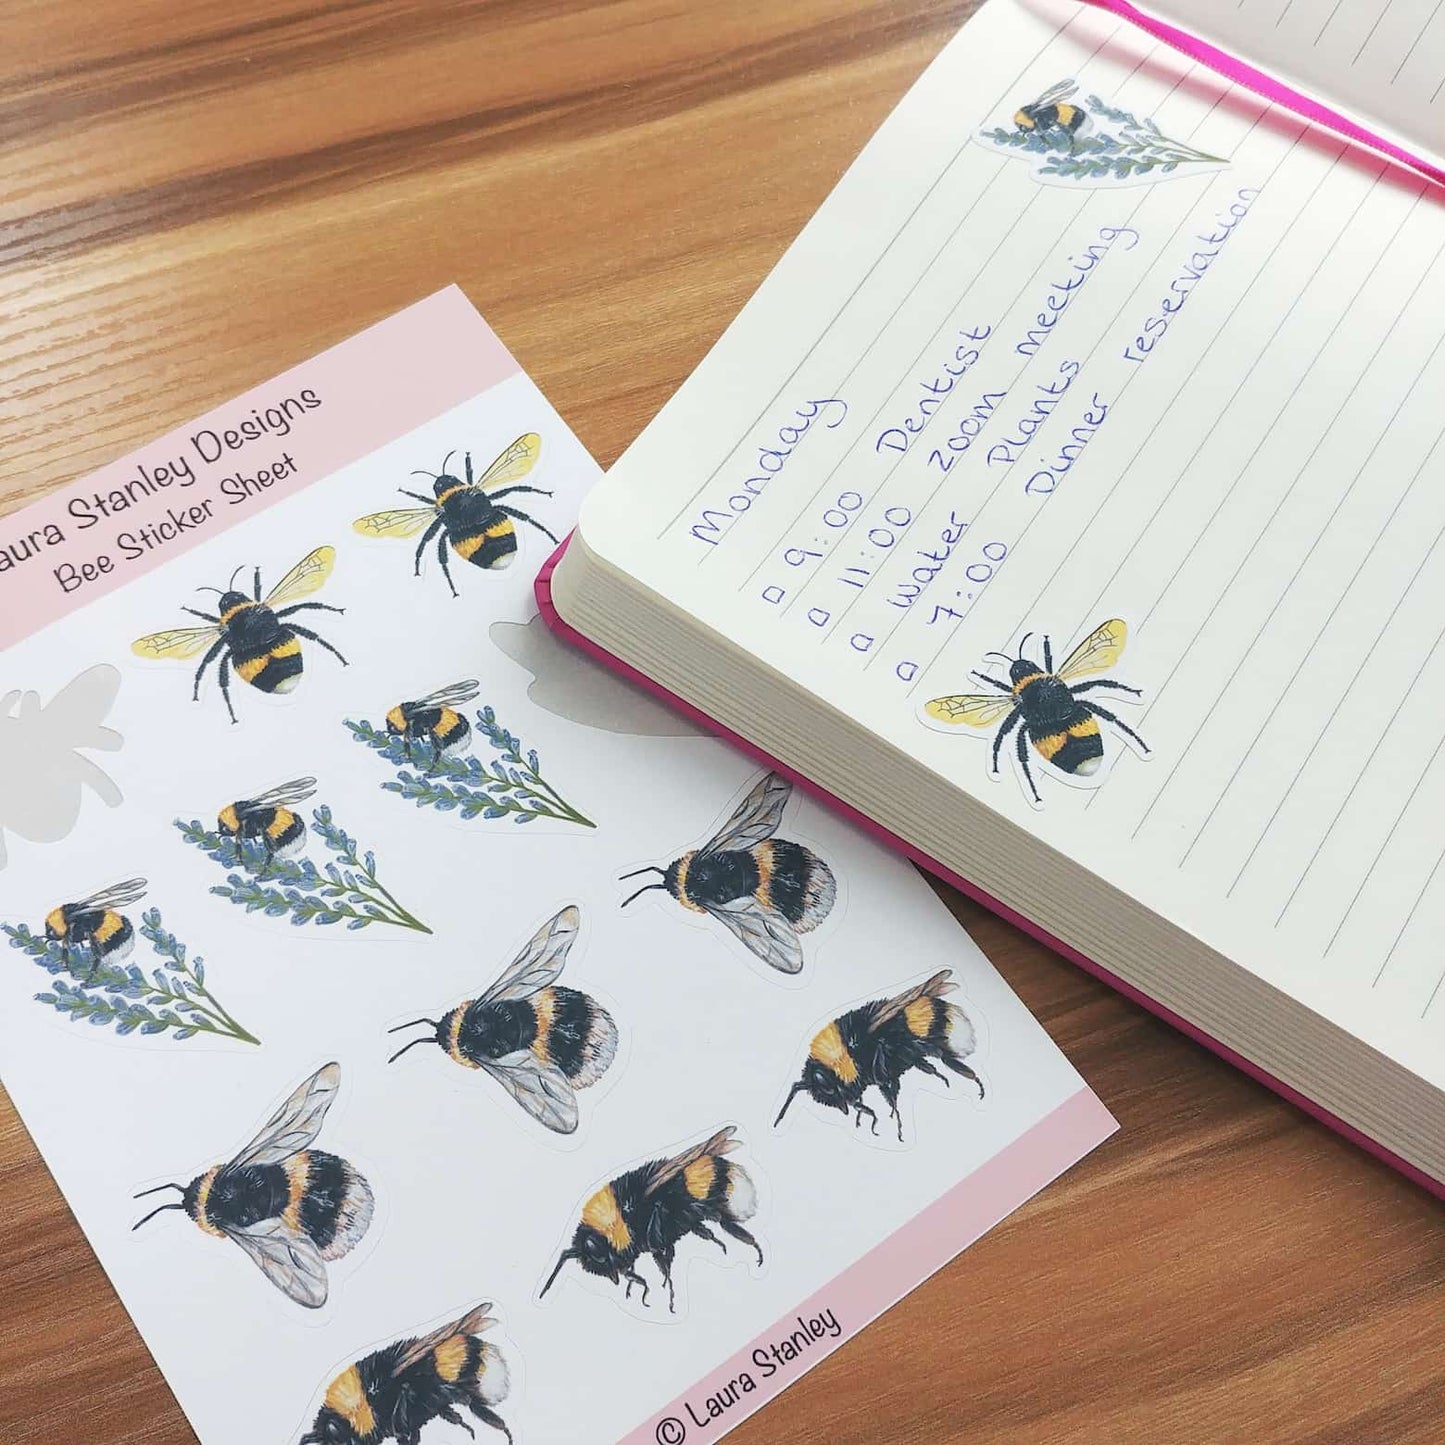 Laura Stanley Designs
Bee Sticker Sheet
© Laura Stanley
Monday
9:00 Dentist
11:00 Zoom meeting
Water Plants
7:00 Dinner reservation